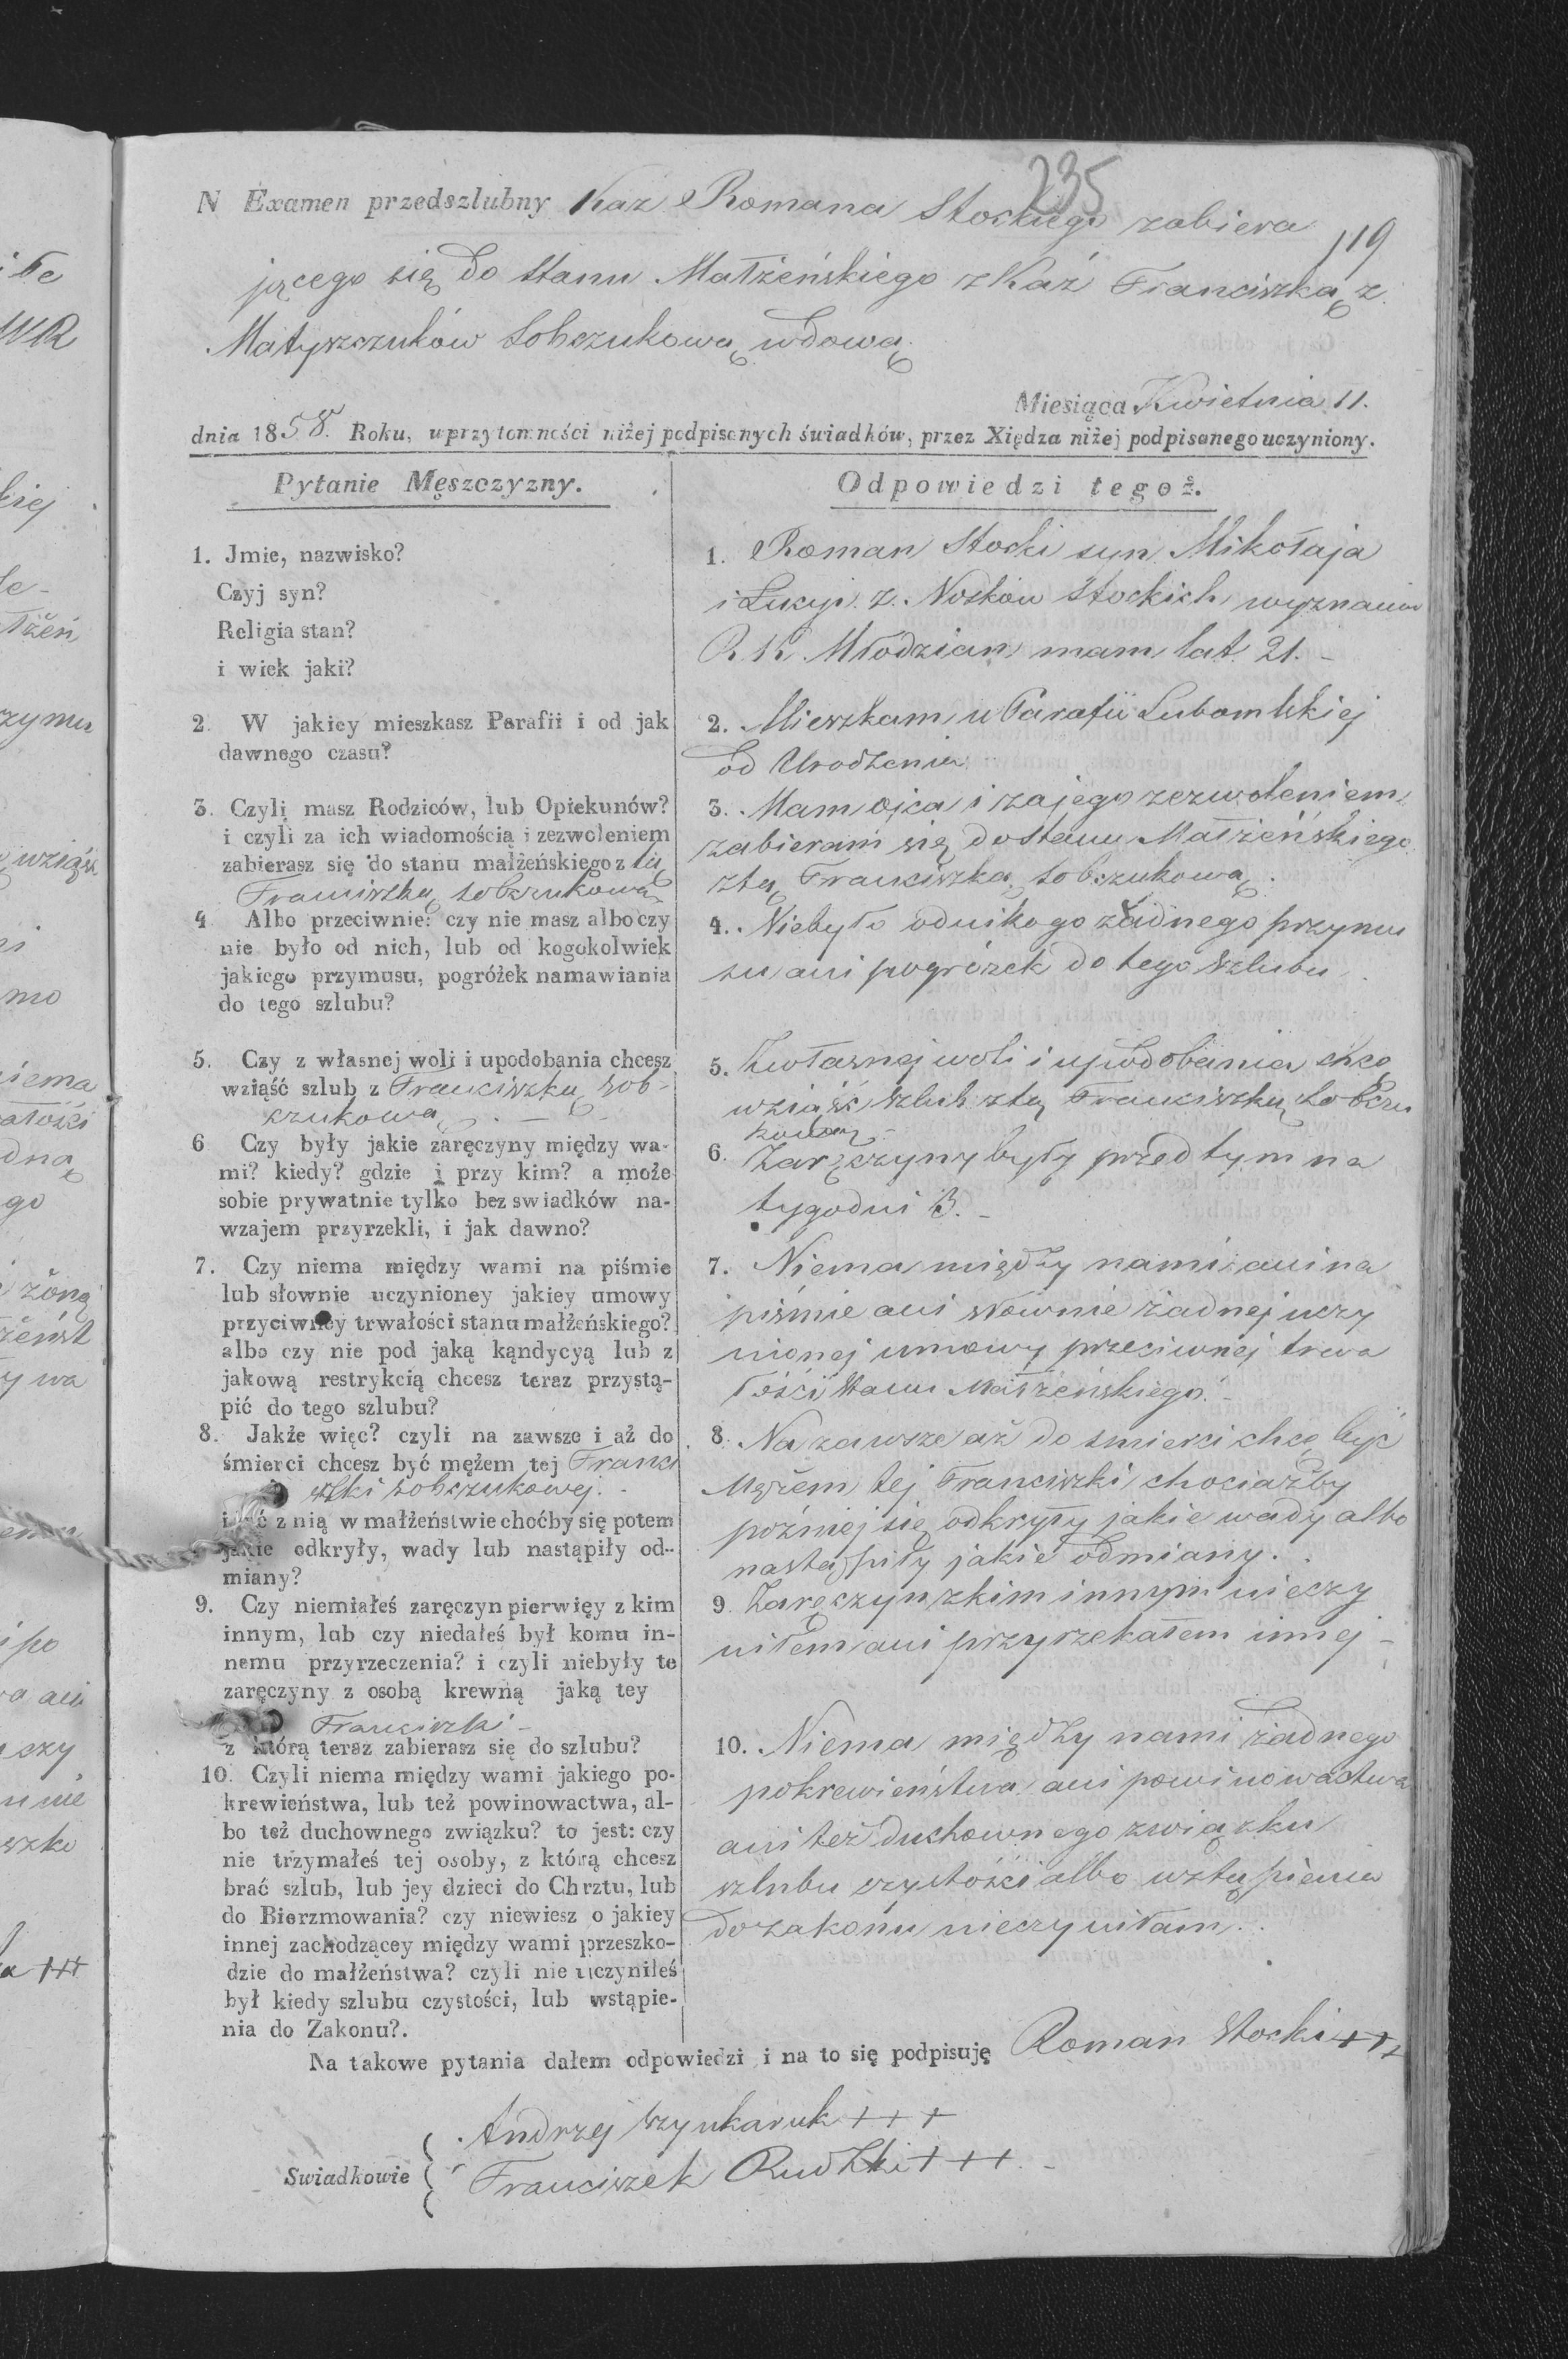 235
N Examen przedszlubny Kaz Romana Stockiego zabiera
119
jącego się do Stanu Małżeńskiego z Kaź Franciszką z
Matyszczuków Sobczukową wdową
Miesiąca Kwietnia 11.
dnia 1858. Roku, w przytomności niżej podpisanych świadków, przez Xiędza niżej podpisanego uczyniony.
Pytanie Męszczyzny.
1. Jmie, nazwisko?
Czyj syn?
Religia stan?
i wiek jaki?
2. W jakiey mieszkasz Parafii i od jak
dawnego czasu?
3. Czyli masz Rodziców, lub Opiekunów?
i czyli za ich wiadomością i zezwoleniem
zabierasz się do stanu małżeńskiego z tą
Franciszką Sobczukową
4 Albo przeciwnie: czy nie masz albo czy
nie było od nich, lub od kogokolwiek
jakiego przymusu, pogróżek namawiania
do tego szlubu?
5. Czy z własnej woli i upodobania chcesz
wziąść szlub z Franciszką Sob-
czukową
6 Czy były jakie zaręczyny między wa-
mi? kiedy? gdzie i przy kim? a może
sobie prywatnie tylko bez swiadków na-
wzajem przyrzekli, i jak dawno?
7. Czy niema między wami na piśmie
lub słownie uczynioney jakiey umowy
przyciwney trwałości stanu małżeńskiego?
albo czy nie pod jaką kąndycyą lub z
jakową restrykcią chcesz teraz przystą-
pić do tego szlubu?
8. Jakże więc? czyli na zawsze i aż do
śmierci chcesz być mężem tej Franci
szki Sobczukowej.
z nią w małżeństwie choćby się potem
jakie odkryły, wady lub nastąpiły od-
miany?
9. Czy niemiałeś zaręczyn pierwięy z kim
innym, lub czy niedałeś był komu in-
nemu przyrzeczenia? i czyli niebyły te
zaręczyny z osobą krewną jaką tey
Franciszki
z którą teraz zabierasz się do szlubu?
10. Czyli niema między wami jakiego po-
krewieństwa, lub też powinowactwa, al-
bo też duchownego związku? to jest: czy
nie trzymałeś tej osoby, z którą chcesz
brać szlub, lub jey dzieci do Chrztu, lub
do Bierzmowania? czy niewiesz o jakiey
innej zachodzącey między wami przeszko-
dzie do małżeństwa? czyli nie uczyniłeś
był kiedy szlubu czystości, lub wstąpie-
nia do Zakonu?.
Odpowiedzi tegoż.
1. Roman Stocki syn Mikołaja
i Łucyi z Nosków Stockich wyznania
R. K. Młodzian mam lat 21.
2. Mieszkam w Parafii Lubomlskiej
od Urodzenia
3. Mam ojca i za jego zezwoleniem
zabieram się do stanu Małżeńskiego
z tą Franciszką Sobczukową.
4. Niebyło od nikogo żadnego przymu
su ani pogróżek do tego szlubu
5. Z własnej woli i upodobania chcę
wziąść szlub z tą Franciszką Sobczu
kową
6. Zaręczyny były przed tym na
tygodni 3.
7. Niema między nami ani na
piśmie ani słownie żadnej uczy
nionej umowy przeciwnej trwa
łości stanu Małżeńskiego.
8. Na zawsze aż do smierci chcę być
Mężem tej Franciszki chociażby
poźniej się odkryły jakie wady albo
nastąpiły jakie odmiany.
9. Zaręczyn z kim innym nieczy
niłem ani przyrzekałem innej
10. Niema między nami żadnego
pokrewieństwa ani powinowactwa
ani też duchownego związku
szlubu czystości albo wstąpienia
do zakonu nieczyniłam.
Na takowe pytania dałem odpowiedzi i na to się podpisuję Roman Stocki +++
Swiadkowie
Andrzej Szynkaruk +++
Franciszek Rudzki +++